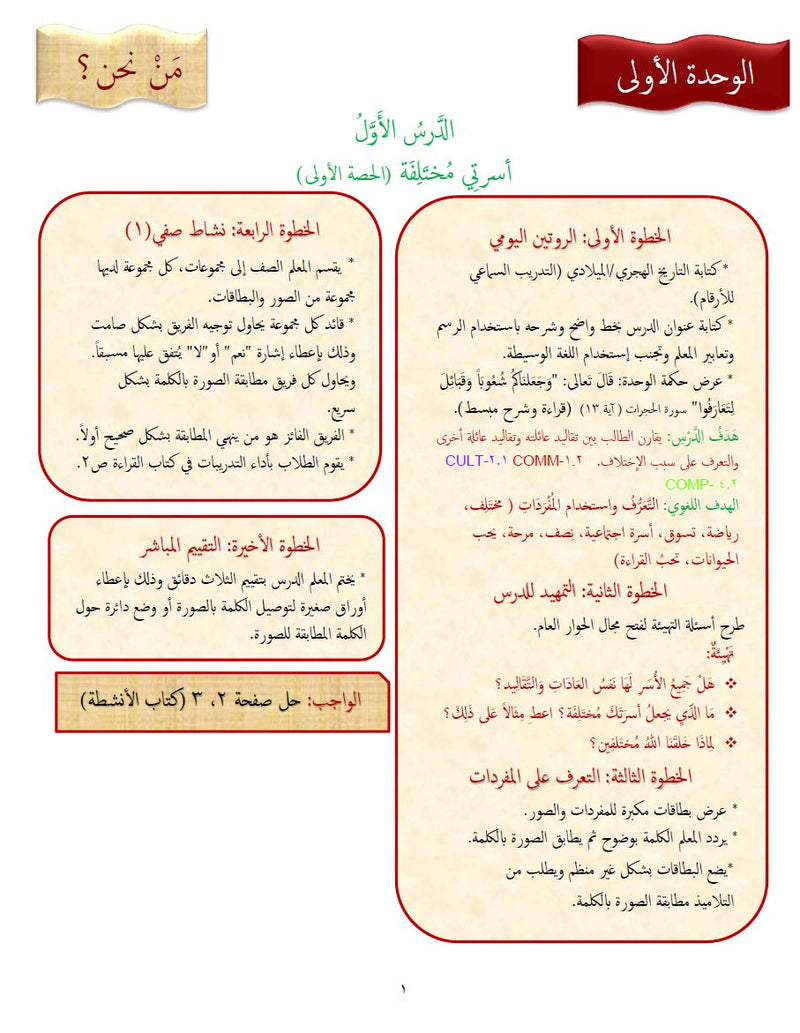 الوحدة الأولى
مَنْ نحن؟
الدَّرسُ الأَوَّلُ
أسرتِي مُختَلِفَة (الحصة الأولى)
الخطوة الأولى: الروتين اليومي
* كتابة التاريخ الهجري/الميلادي (التدريب السماعي
للأرقام).
* كتابة عنوان الدرس بخط واضح وشرحه باستخدام الرسم
وتعابير المعلم وتجنب إستخدام اللغة الوسيطة.
* عرض حكمة الوحدة: قَالَ تَعالى: "وَجَعَلنَاكُمْ شُعُوبَاً وَقَبَائِلَ
لِتَعَارَفُوا" سورة الحجرات ( آية ١٣) (قراءة وشرح مبسط).
هَدَفُ الدَّرْسِ: يقارن الطالب بين تقاليد عائلته وتقاليد عائلة أخرى
والتعرف على سبب الإختلاف. COMM-١.٢ CULT-٢.١
COMP- ٤.٢
الهدف اللغوي: التَّعَرُّفُ واستخدام المُفْرَدَاتِ ( مختَلِف،
رياضة، تسوق، أسرة اجتماعية، نِصف، مرحة، يحب
الحيوانات، تحبُ القراءة)
الخطوة الثانية: التمهيد للدرس
طرح أسئلة التهيئة لفتح مجال الحوار العام.
تَهْيِئَةٌ:
❖ هَلْ جَمِيعُ الأُسَرِ لَهَا نَفسُ العَادَاتِ وَالتَّقَالِيد؟
❖ مَا الَّذِي يجعلُ أسرَتَكَ مُختَلِفَة؟ اعطِ مِثَالاً عَلى ذَلِكَ؟
❖ لِمَاذَا خَلَقَنَا اللهُ مُختَلفِين؟
الخطوة الثالثة: التعرف على المفردات
* عرض بطاقات مكبرة للمفردات والصور.
* يردد المعلم الكلمة بوضوح ثم يطابق الصورة بالكلمة.
*يضع البطاقات بشكل غير منظم ويطلب من
التلاميذ مطابقة الصورة بالكلمة.
الخطوة الرابعة: نشاط صفي(١)
* يقسم المعلم الصف إلى مجموعات، كل مجموعة لديها
مجموعة من الصور والبطاقات.
* قائد كل مجموعة يحاول توجيه الفريق بشكل صامت
وذلك بإعطاء إشارة "نعم" أو"لا" يُتفق عليها مسبقاً.
ويحاول كل فريق مطابقة الصورة بالكلمة بشكل
سريع.
* الفريق الفائز هو من ينهي المطابقة بشكل صحيح أولاً.
* يقوم الطلاب بأداء التدريبات في كتاب القراءة ص٢.
الخطوة الأخيرة: التقييم المباشر
* يختم المعلم الدرس بتقييم الثلاث دقائق وذلك بإعطاء
أوراق صغيرة لتوصيل الكلمة بالصورة أو وضع دائرة حول
الكلمة المطابقة للصورة.
الواجب: حل صفحة ٢، ٣ (كتاب الأنشطة)
١